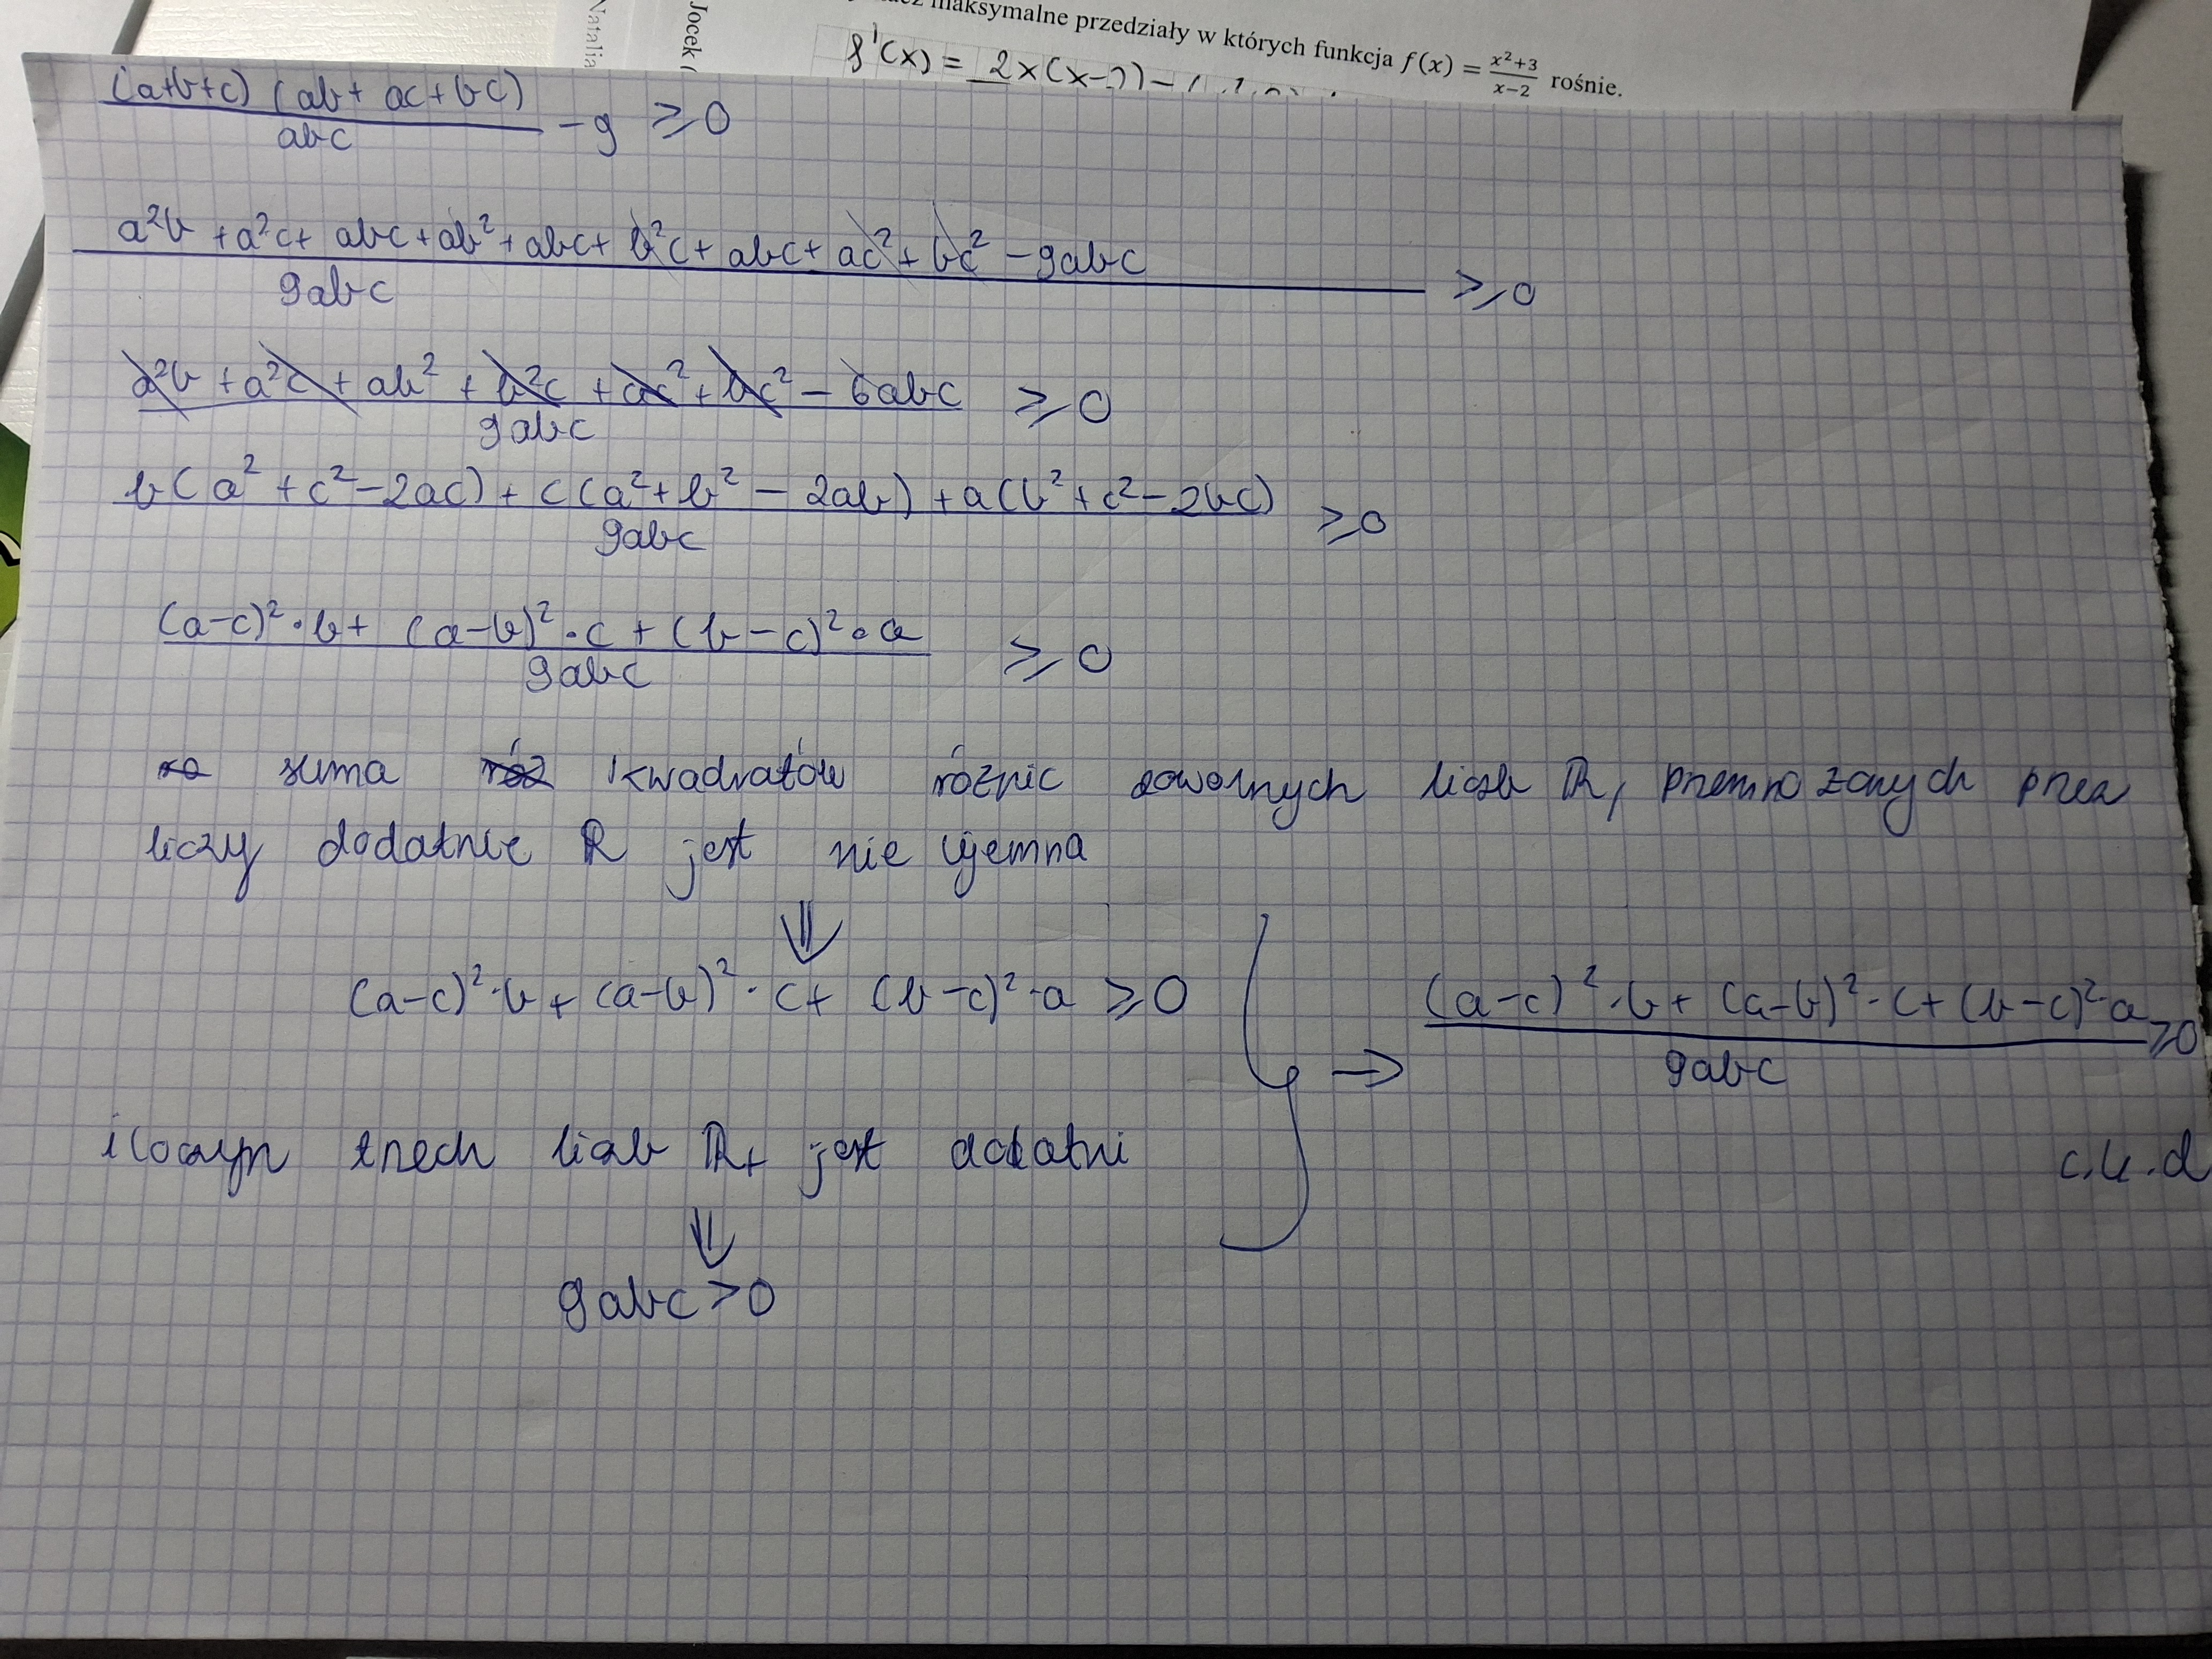 maksymalne przedziały w których funkcja f(x) = \frac{x²+3}{x-2} rośnie.
Natalia
Jocek (
f'(x) = 2x(x-2) - (
\frac{(a+b+c)(ab+ac+bc)}{abc} - 9 ≥ 0
\frac{a²b + a²c + abc + ab² + abc + b²c + abc + ac² + bc² - 9abc}{9abc} ≥ 0
\frac{a²b + a²c + ab² + b²c + ac² + bc² - 6abc}{9abc} ≥ 0
\frac{b(a² + c² - 2ac) + c(a² + b² - 2ab) + a(b² + c² - 2bc)}{9abc} ≥ 0
\frac{(a-c)²·b + (a-b)²·c + (b-c)²·a}{9abc} ≥ 0
suma kwadratów różnic dowolnych liczb ℝ, przemnożonych przez
liczy dodatnie ℝ jest nie ujemna
⇓
(a-c)²·b + (a-b)²·c + (b-c)²·a ≥ 0
→ \frac{(a-c)²·b + (a-b)²·c + (b-c)²·a}{9abc} ≥ 0
iloczyn trzech liczb ℝ+ jest dodatni
c.k.d
⇓
9abc > 0